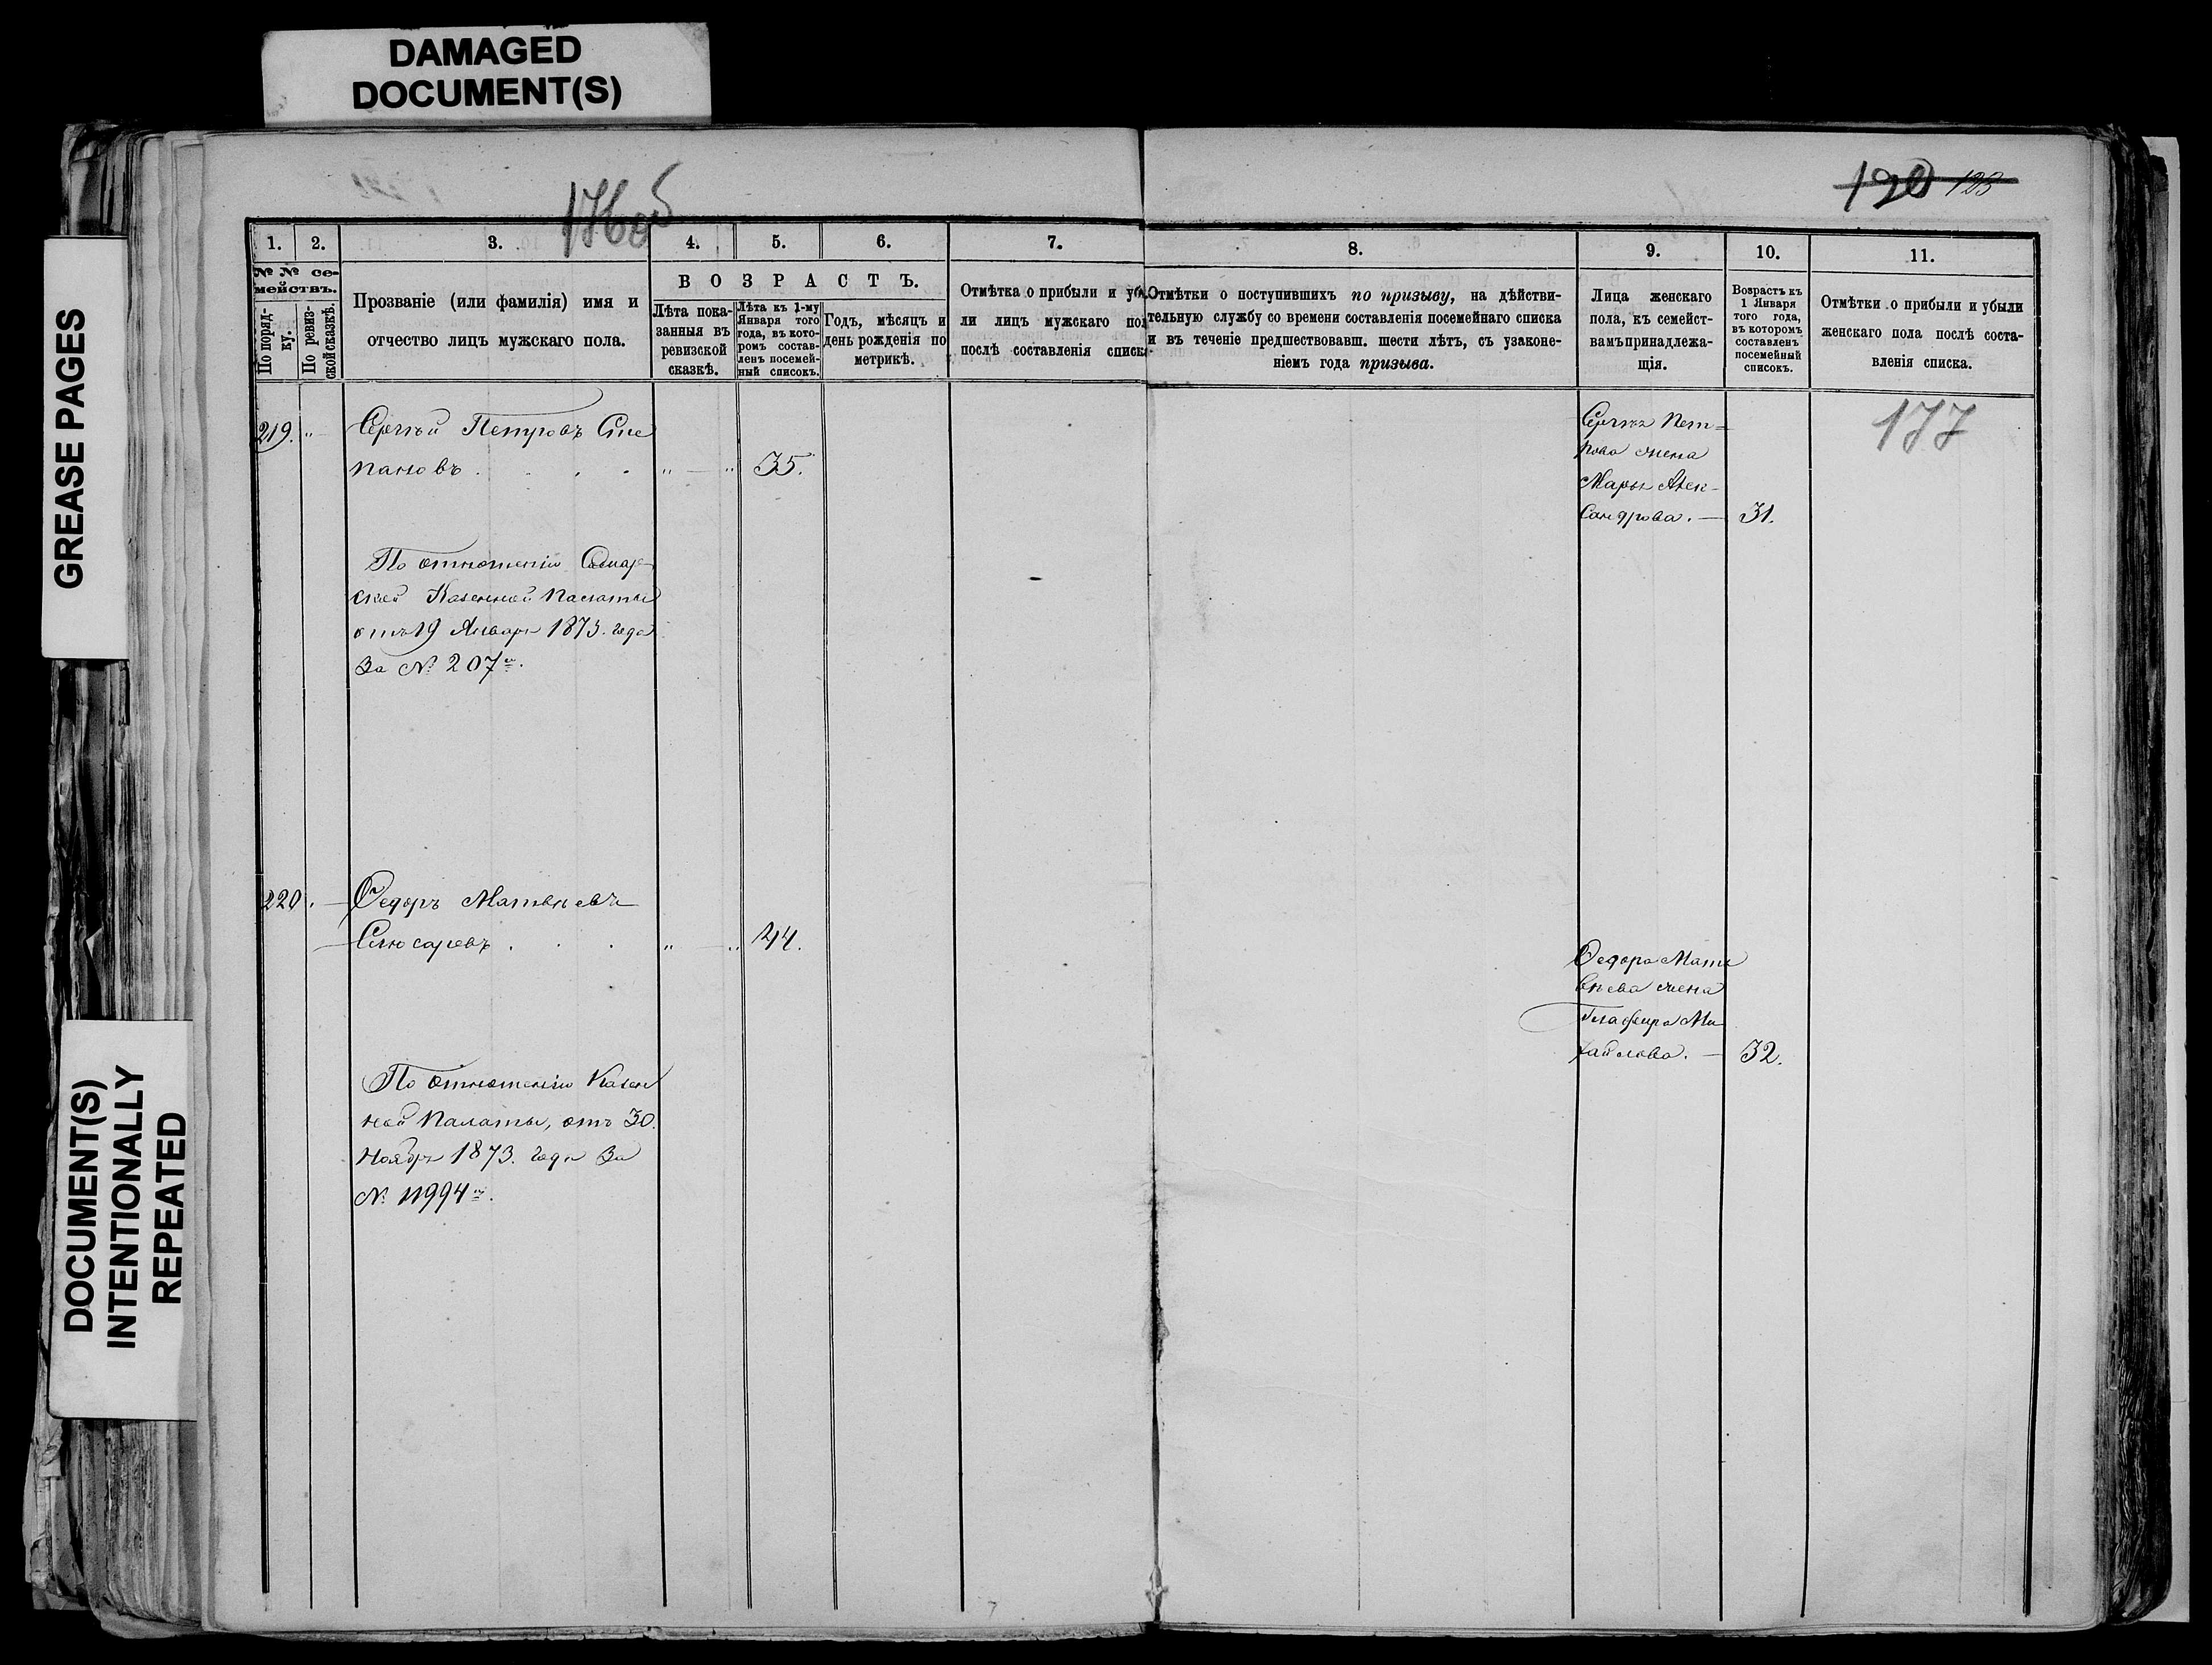 DAMAGED
DOCUMENT(S)
GREASE PAGES
DOCUMENT(S)
INTENTIONALLY
REPEATED
176об
120 123
1.
2.
3.
4.
5.
6.
7.
8.
9.
10.
11.
№ № се-
мействъ.
По поряд-
ку.
По ревиз-
ской сказкѣ.
Прозваніе (или фамилія) имя и
отчество лицъ мужскаго пола.
ВОЗРАСТЪ.
Лѣта пока-
занныя въ
ревизской
сказкѣ.
Лѣта къ 1-му
Января того
года, въ кото-
ромъ состав-
ленъ посемей-
ный списокъ.
Годъ, мѣсяцъ и
день рожденія по
метрикѣ.
Отмѣтка о прибыли и убы
ли лицъ мужскаго пол
послѣ составленія списка
Отмѣтки о поступившихъ по призыву, на дѣйстви-
тельную службу со времени составленія посемейнаго списка
и въ теченіе предшествовавш. шести лѣтъ, съ узаконе-
ніемъ года призыва.
Лица женскаго
пола, къ семейст-
вамъ принадлежа-
щія.
Возрастъ къ
1 Января
того года,
въ которомъ
составленъ
посемейный
списокъ.
Отмѣтки о прибыли и убыли
женскаго пола послѣ соста-
вленія списка.
177
219. " Сергѣй Петровъ Сте
пановъ . . . . " — " 35.
По отношенію Самар-
ской Казенной Палаты
отъ 19 Января 1873. года
за № 207м.
Сергѣя Пет=
рова жена
Марья Алек-
сандрова. — 31.
220. — Федоръ Матвѣевъ
Слюсаревъ . . . " — " 44.
По отношенію Казен
ной Палаты, отъ 30.
Ноября 1873. года за
№ 11994м.
Федора Мат
вѣева жена
Глафира Ми
хайлова. — 32.